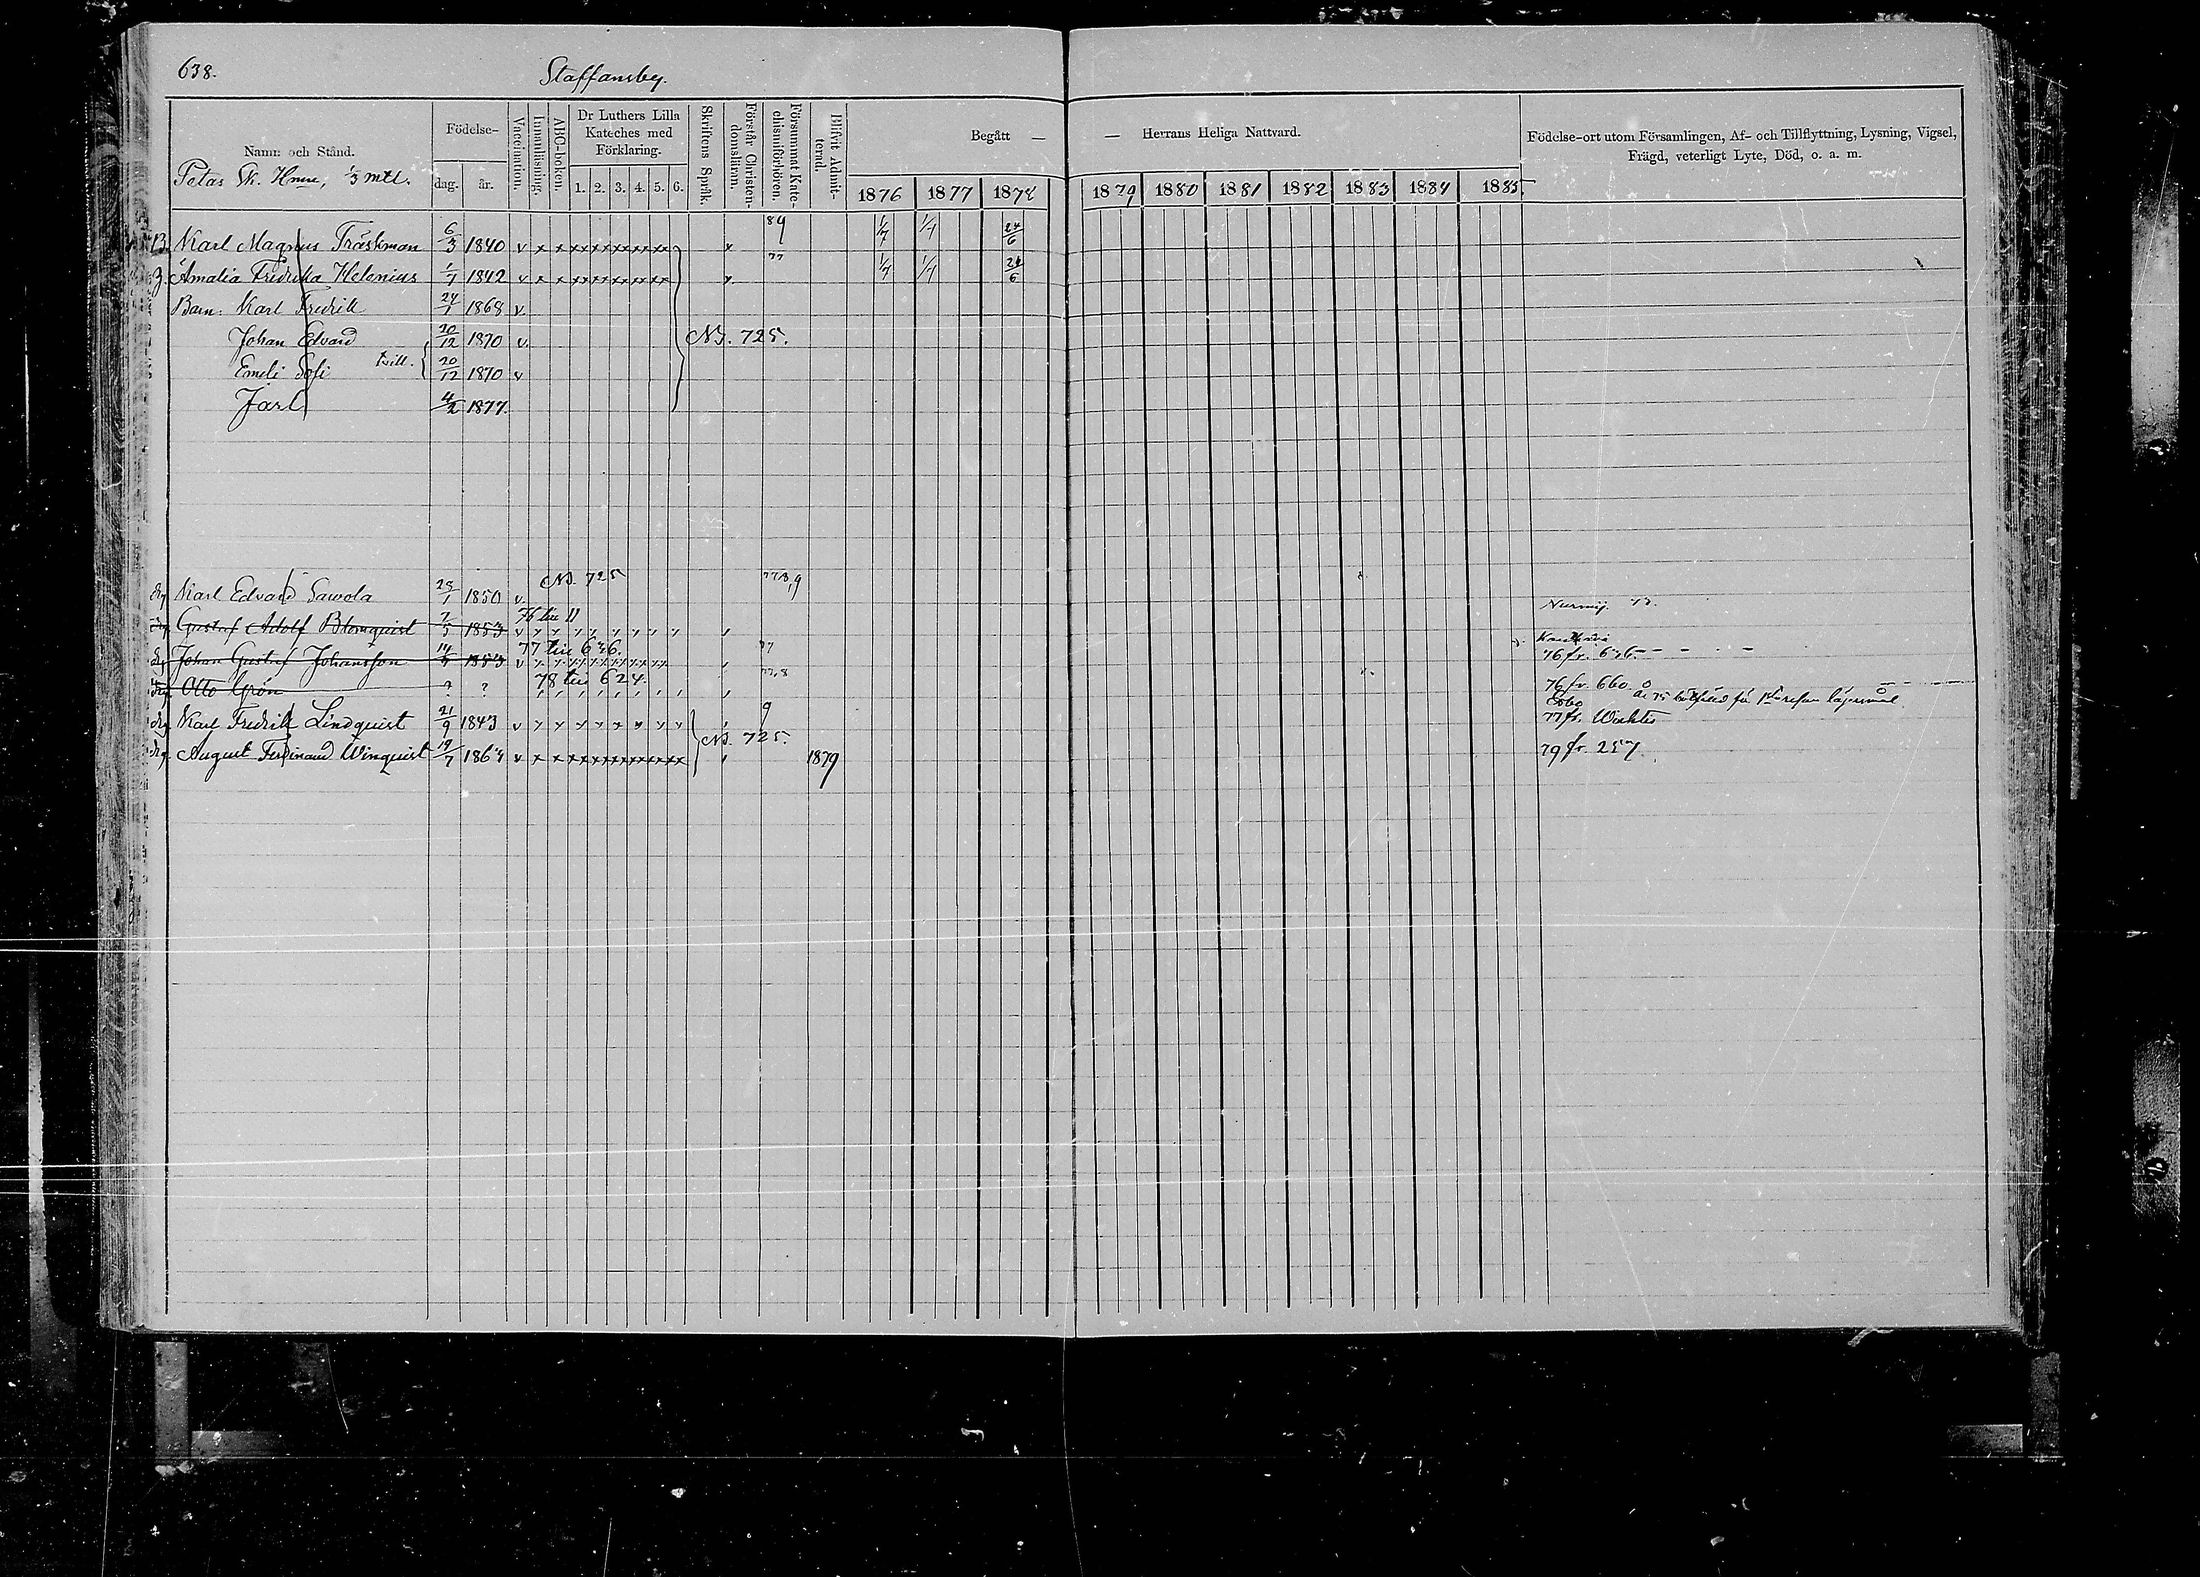 638.
Staffansby.
Namn och Stånd.
Födelse-
dag. år.
Vaccination.
Innanläsning.
ABC-boken.
Dr Luthers Lilla
Kateches med
Förklaring.
1. 2. 3. 4. 5. 6.
Skriftens Språk.
Förstår Christen-
domsläran.
Försummat Kate-
chismiförhören.
Blifvit Admit-
terad.
Begått —
— Herrans Heliga Nattvard.
Födelse-ort utom Församlingen, Af- och Tillflyttning, Lysning, Vigsel,
Frägd, veterligt Lyte, Död, o. a. m.
Petas Sk. Hmn, 1/3 mtl.
1876 1877 1878 1879 1880 1881 1882 1883 1884 1885
B. Karl Magnus Träskman 6/3 1840 v x x x x x x x x x x x 1/7 1/7 24/6
Amalia Fredrika Helenius 1/7 1842 v x x x x x x x x x x x 77 1/7 1/7 24/6
Barn: Karl Fredrik 24/7 1868 v.
Johan Edvard 20/12 1870 v. N3. 725.
Emeli Sofi tvill. 20/12 1870 v
Jarl 4/2 1877.
Drg Karl Edvard Sawola 1850 v N3. 725
Gustaf Adolf Blomquist 1853 v
Johan Gustaf Johansson 1853 v 77 till 646. 77 76 fr. 646
Otto Grön ? ? 78 till 624. 77,8 76 fr. 660
Drg Karl Fredrik Lindquist 21/9 1843 v 9 77 fr. Wichtis
N3. 725.
Drg August Ferdinand Winquist 19/7 v x x x x x x x x x x x 1879 79 fr. 257.